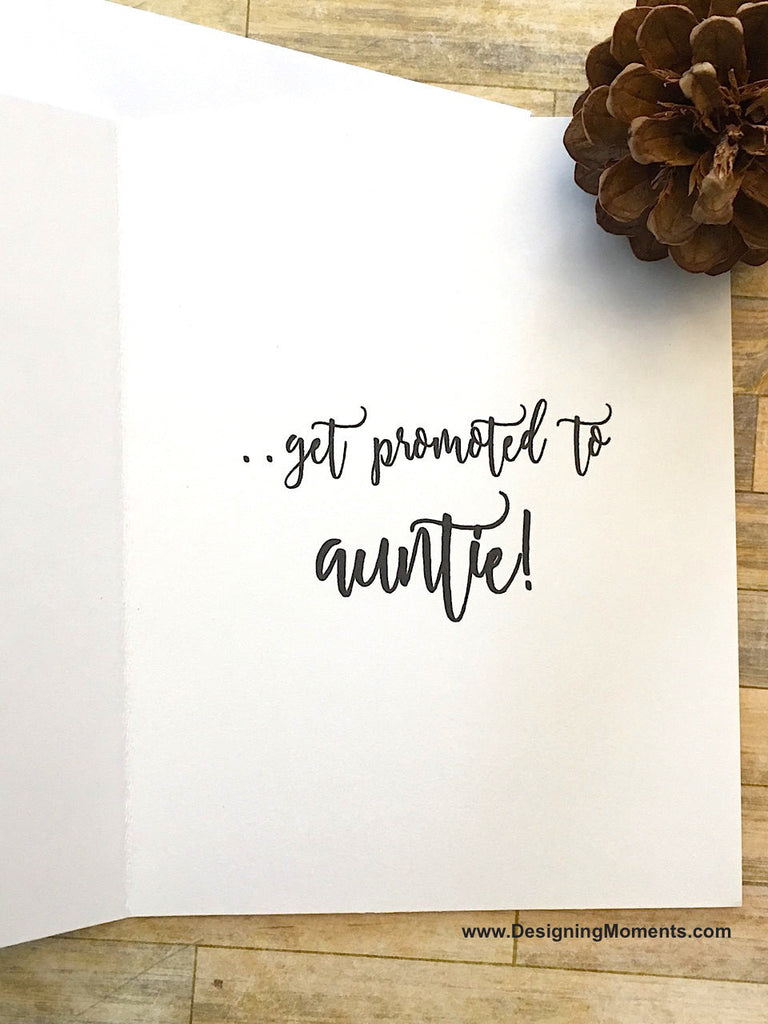 ..get promoted to
auntie!
www.DesigningMoments.com